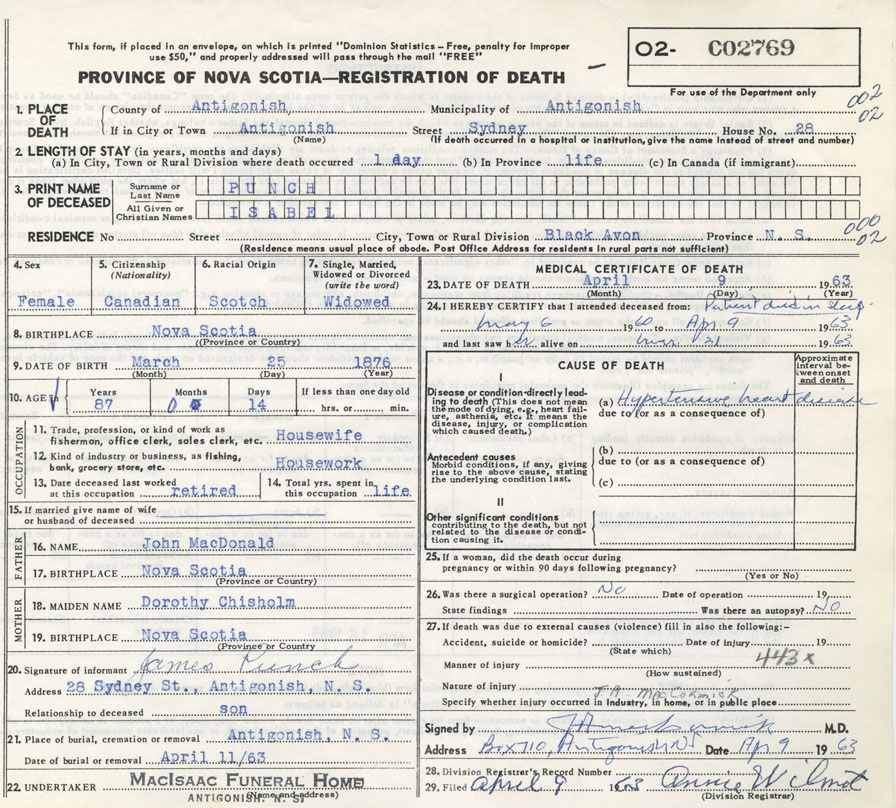 This form, if placed in an envelope, on which is printed "Dominion Statistics - Free, penalty for improper
use $50," and properly addressed will pass through the mail "FREE"
PROVINCE OF NOVA SCOTIA—REGISTRATION OF DEATH
02- C02769
For use of the Department only
002
02
1. PLACE OF DEATH
County of Antigonish Municipality of Antigonish
If in City or Town Antigonish Street Sydney House No. 28
(Name) (If death occurred in a hospital or institution, give the name instead of street and number)
2. LENGTH OF STAY (in years, months and days)
(a) In City, Town or Rural Division where death occurred 1 day (b) In Province life (c) In Canada (if immigrant)
3. PRINT NAME OF DECEASED
Surname or Last Name PUNCH
All Given or Christian Names ISABEL
000
02
RESIDENCE No Street City, Town or Rural Division Black Avon Province N. S.
(Residence means usual place of abode. Post Office Address for residents in rural parts not sufficient)
4. Sex Female
5. Citizenship (Nationality) Canadian
6. Racial Origin Scotch
7. Single, Married, Widowed or Divorced (write the word) Widowed
8. BIRTHPLACE Nova Scotia
(Province or Country)
9. DATE OF BIRTH March 25 1876
(Month) (Day) (Year)
10. AGE in Years 87 Months 0 Days 14 If less than one day old hrs. or min.
OCCUPATION
11. Trade, profession, or kind of work as fisherman, office clerk, sales clerk, etc. Housewife
12. Kind of industry or business, as fishing, bank, grocery store, etc. Housework
13. Date deceased last worked at this occupation retired
14. Total yrs. spent in this occupation life
15. If married give name of wife or husband of deceased
FATHER
16. NAME John MacDonald
17. BIRTHPLACE Nova Scotia
(Province or Country)
MOTHER
18. MAIDEN NAME Dorothy Chisholm
19. BIRTHPLACE Nova Scotia
(Province or Country)
20. Signature of informant James Punch
Address 28 Sydney St., Antigonish, N. S.
Relationship to deceased son
21. Place of burial, cremation or removal Antigonish, N. S.
Date of burial or removal April 11/63
22. UNDERTAKER MacIsaac Funeral Home
(Name and address)
ANTIGONISH, N. S.
MEDICAL CERTIFICATE OF DEATH
23. DATE OF DEATH April 9 1963
(Month) (Day) (Year)
24. I HEREBY CERTIFY that I attended deceased from: Patient died in sleep.
May 6 1960 to Apr 9 1963
and last saw her alive on 21 1963
CAUSE OF DEATH
Approximate interval between onset and death
I
Disease or condition directly leading to death (This does not mean the mode of dying, e.g., heart failure, asthenia, etc. It means the disease, injury, or complication which caused death.)
(a) Hypertensive heart disease
due to (or as a consequence of)
Antecedent causes
Morbid conditions, if any, giving rise to the above cause, stating the underlying condition last.
(b)
due to (or as a consequence of)
(c)
II
Other significant conditions contributing to the death, but not related to the disease or condition causing it.
25. If a woman, did the death occur during pregnancy or within 90 days following pregnancy?
(Yes or No)
26. Was there a surgical operation? No Date of operation 19
State findings Was there an autopsy? No
27. If death was due to external causes (violence) fill in also the following:-
Accident, suicide or homicide? Date of injury 19
(State which)
443x
Manner of injury
(How sustained)
Nature of injury
J.A. MacCormick
Specify whether injury occurred in industry, in home, or in public place
Signed by M.D.
Address Box 710, Antigonish NS Date Apr 9 1963
28. Division Registrar's Record Number
29. Filed April 9 1963 Annie Wilmot
(Division Registrar)